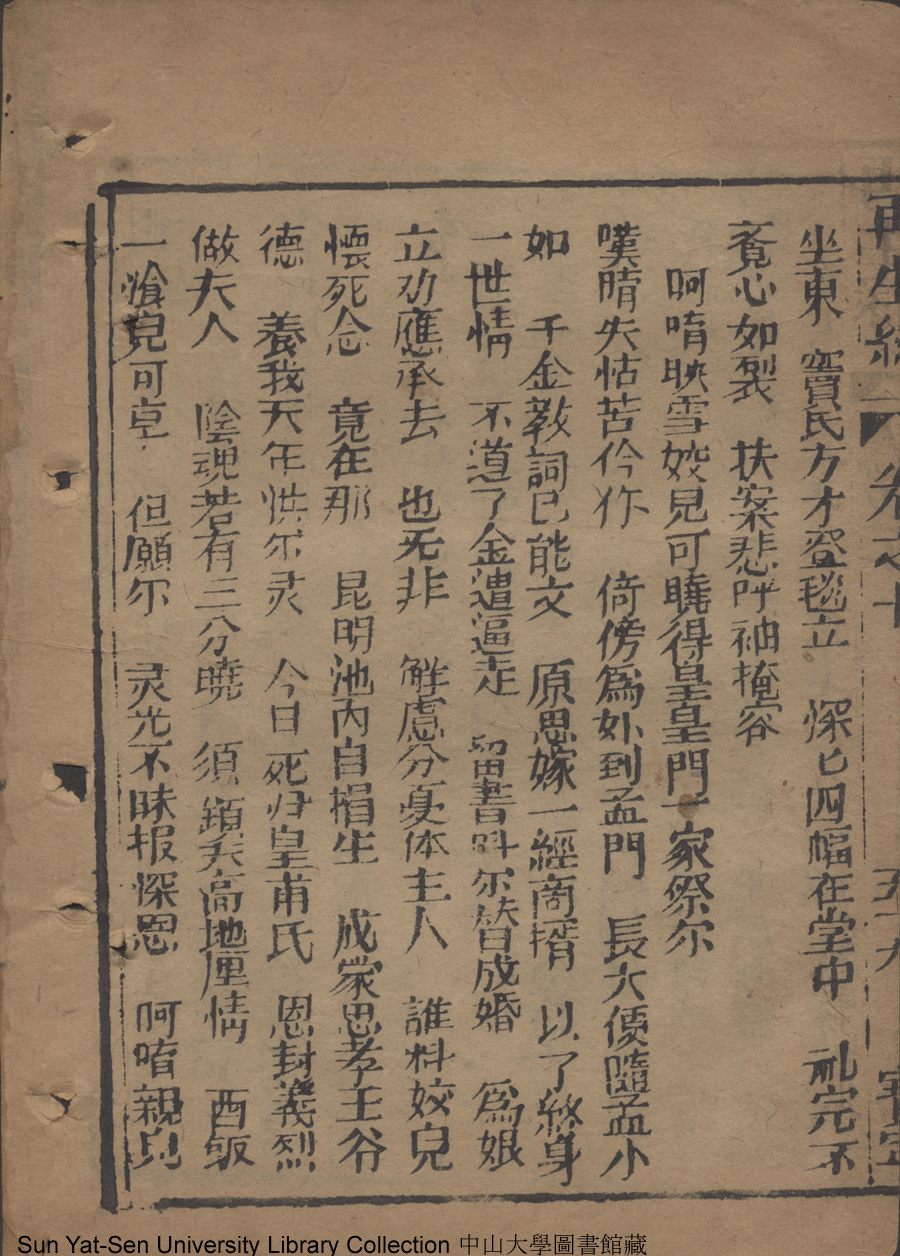 再生緣 卷之十 五十九 寶寧
坐東 竇氏方才登毯立 深匕四幅在堂中 礼完不
竟心如裂 扶案悲呼袖掩容
呵唷映雪姣見可曉得皇皇門一家祭尔
嘆晴失怙苦伶仃 倚傍爲奶到孟門 長大便隨孟小
如 千金教詞已能文 原思嫁一經商婿 以了終身
一世情 不道了金遣逼走 留書呌尔替成婚 爲娘
立劝應承去 也无非 觧慮分憂体主人 誰料姣兒
懷死念 竟在那 昆明池內自捐生 成蒙思孝王爷
德 養我天年供尔灵 今日死归皇甫氏 恩封義烈
做夫人 陰魂若有三分曉 須顕天高地厚情 酒飯
一飧兒可享 但願尔 灵光不昧报深恩 呵唷親兒
Sun Yat-Sen University Library Collection 中山大學圖書館藏